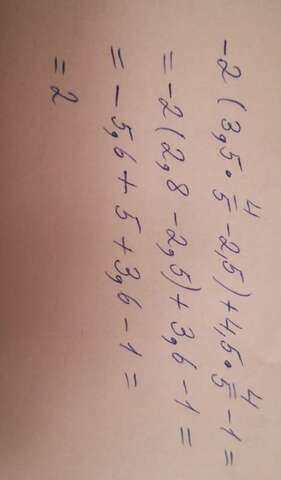 -2(3,5·4/5-2,5)+4,5·4/5-1=
=-2(2,8-2,5)+3,6-1=
=-5,6+5+3,6-1=
=2